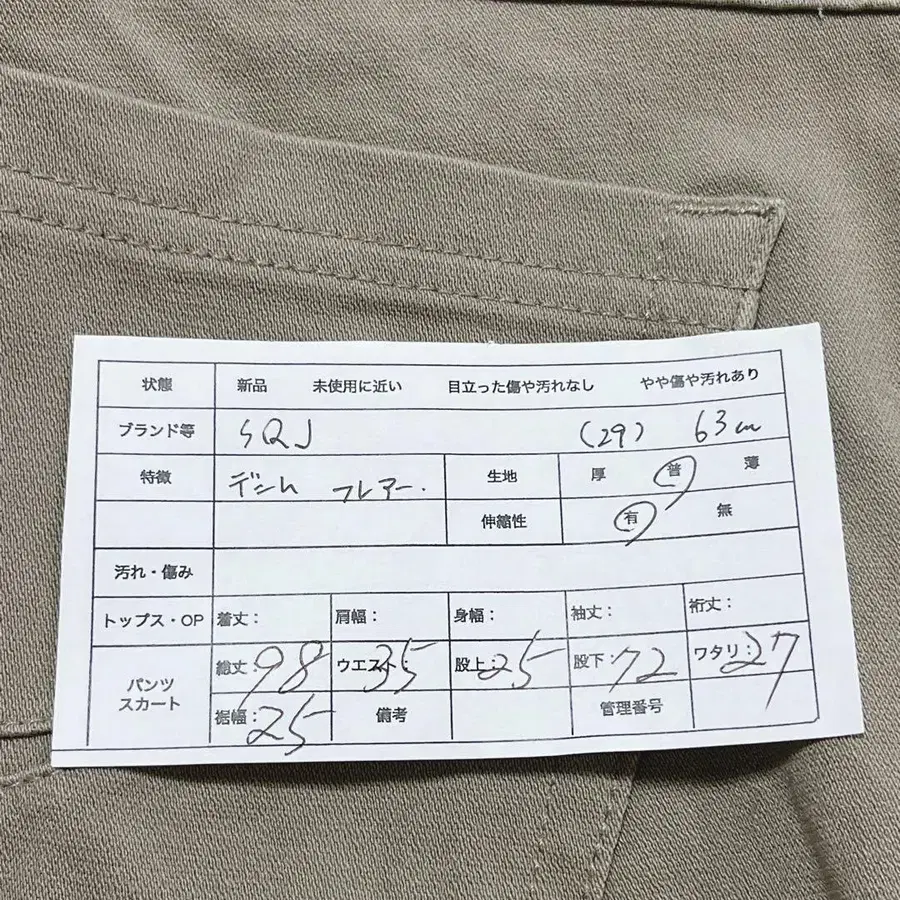 状態 新品 未使用に近い 目立った傷や汚れなし やや傷や汚れあり
ブランド等 SQJ (29) 63cm
特徴 デニム フレアー. 生地 厚 普 薄
伸縮性 有 無
汚れ・傷み
トップス・OP 着丈: 肩幅: 身幅: 袖丈: 裄丈:
パンツ スカート 総丈:98 ウエスト:35 股上:25 股下:72 ワタリ:27
裾幅:25 備考 管理番号